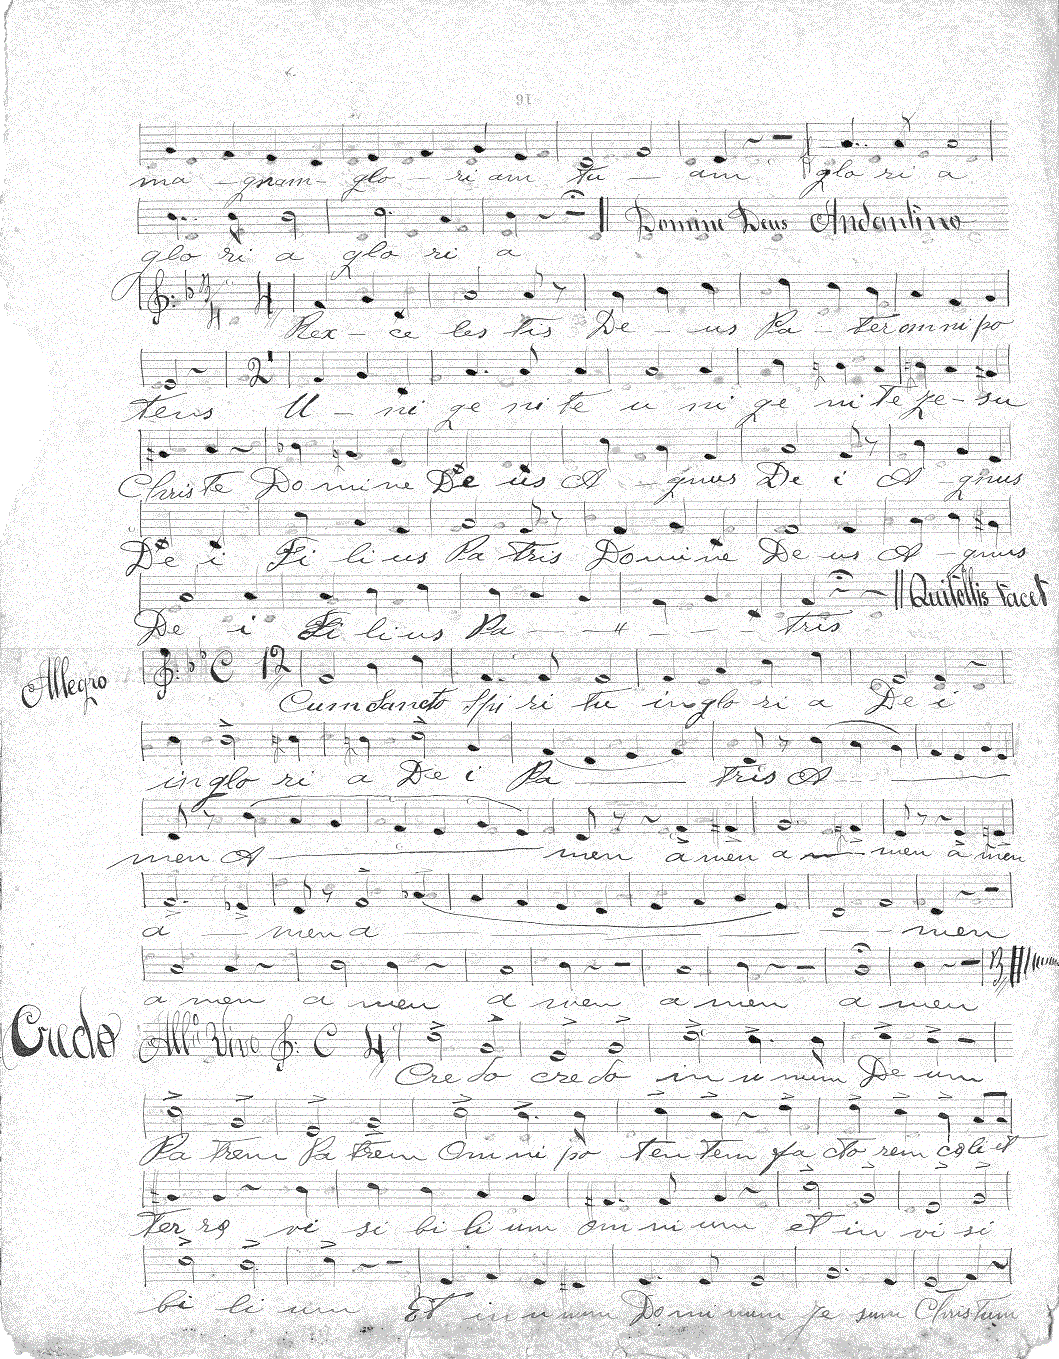 16
ma - gnam - glo - ri am tu - am glo ri a
glo ri a glo ri a Domine Deus Andantino
3/4 4
Rex - ce les tis De - us Pa - ter om ni po
2
tens U - ni ge ni te u ni ge ni te Je - su
Chris te Do mi ne De us A - gnus De i A - gnus
De i Fi li us Pa tris Domine De us A - gnus
De i Fi li us Pa - - - - - tris Quitollis tacet
Allegro C 12
Cum Sancto Spi ri tu in glo ri a De i
in glo ri a De i Pa tris A
men A men a men a - men a men
a - men a - men
a men a men a men a men a men
Credo All° Vivo C 4
Cre do cre do in u num De um
Pa trem Pa trem Om ni po ten tem fa cto rem coli et
ter ra vi si bi li um om ni um et in vi si
bi li um Et in u num Do mi num Je sum Christum